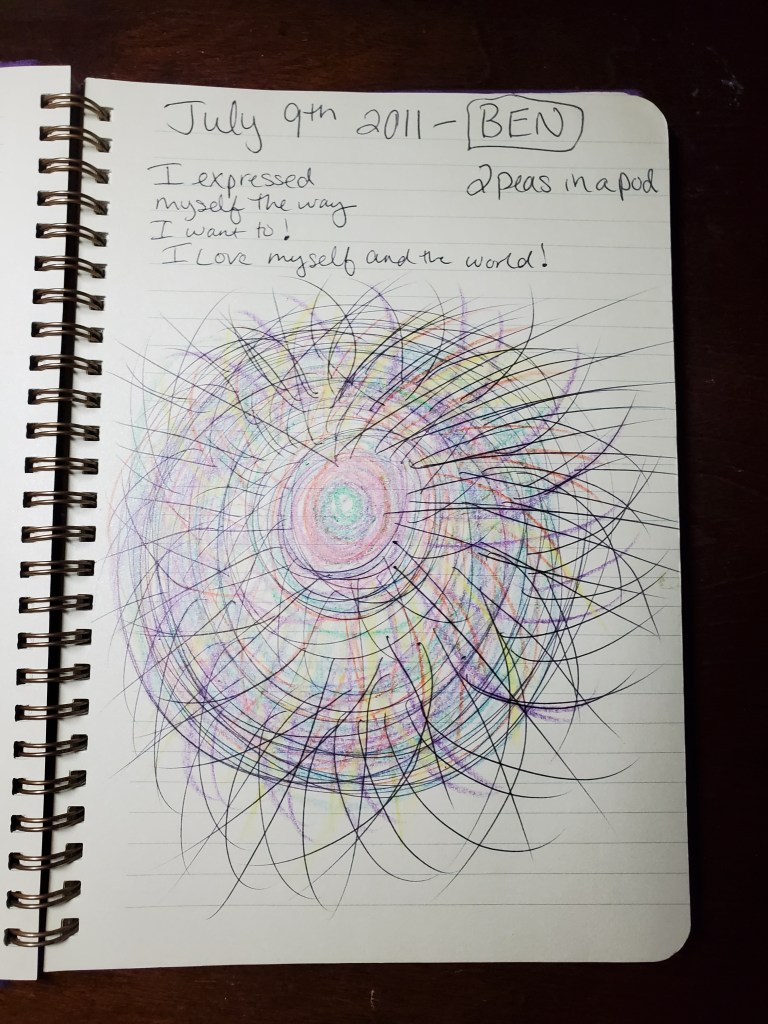 July 9th 2011 - BEN
2 peas in a pod
I expressed
myself the way
I want to!
I Love myself and the world!